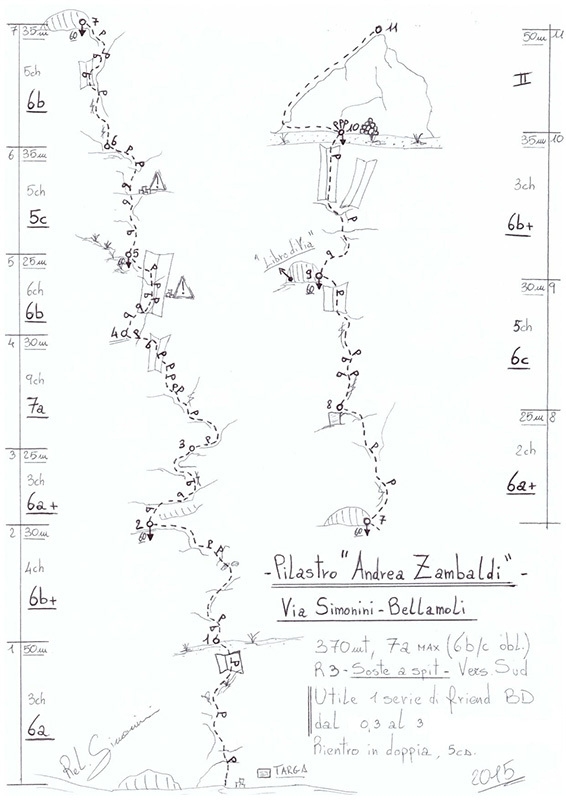 7 35m
5ch
6b
6 35m
5ch
5c
5 25m
6ch
6b
4 30m
9ch
7a
3 25m
3ch
6a+
2 30m
4ch
6b+
1 50m
3ch
6a
7
60
6
5
60
4
3
2
60
1
Rel. Simonini
TARGA
11
10
"Libro di Via"
9
60
8
7
60
50m 11
II
35m 10
3ch
6b+
30m 9
5ch
6c
25m 8
2ch
6a+
- Pilastro "Andrea Zambaldi" -
Via Simonini - Bellamoli
370mt, 7a MAX (6b/c obl.)
R3 - Soste a spit - Vers. Sud
Utile 1 serie di friend BD
dal 0,3 al 3
Rientro in doppia, 5cd.
2015